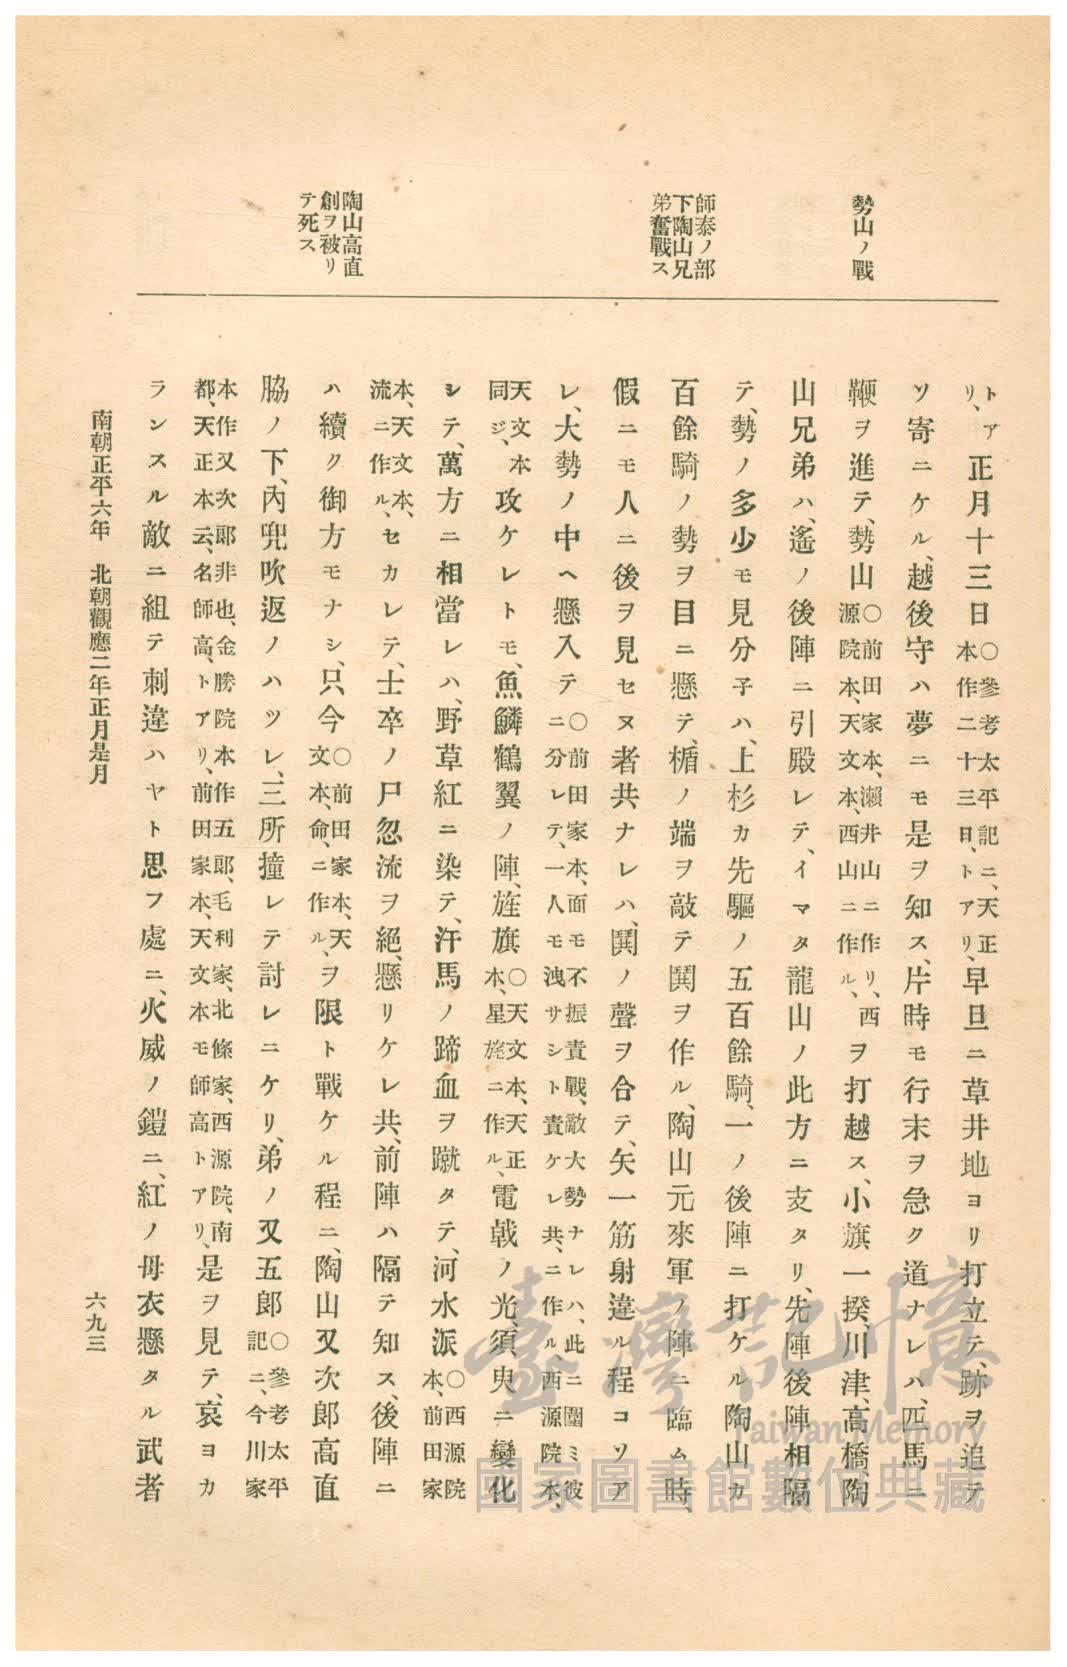 勢山ノ戰
師泰ノ部
下陶山兄
弟奮戰ス
陶山高直
創ヲ被リ
テ死ス
トア
リ、正月十三日○參考太平記ニ、天正本作二十三日、トアリ、早旦ニ草井地ヨリ打立テ、跡ヲ追テ
ソ寄ニケル、越後守ハ夢ニモ是ヲ知ス、片時モ行末ヲ急ク道ナレハ、匹馬ニ
鞭ヲ進テ、勢山○前田家本、瀨井山ニ作リ、西源院本、天文本、西山ニ作ル、ヲ打越ス、小旗一揆、川津、高橋、陶
山兄弟ハ、遙ノ後陣ニ引殿レテ、イマタ龍山ノ此方ニ支タリ、先陣後陣相隔
テ、勢ノ多少モ見分子ハ、上杉カ先驅ノ五百餘騎、一ノ後陣ニ打ケル陶山カ
百餘騎ノ勢ヲ目ニ懸テ、楯ノ端ヲ敲テ鬨ヲ作ル、陶山元來軍ノ陣ニ臨ム時、
假ニモ人ニ後ヲ見セヌ者共ナレハ、鬨ノ聲ヲ合テ、矢一筋射違ル程コソア
レ、大勢ノ中ヘ懸入テ○前田家本、面モ不振責戰、敵大勢ナレハ、此ニ圍ミ彼ニ分レテ、一人モ洩サシト責ケレ共、ニ作ル、西源院本、
天文本同ジ、攻ケレトモ、魚鱗鶴翼ノ陣、旌旗○天文本、天正本、星旄ニ作ル、電戟ノ光、須臾ニ變化
シテ、萬方ニ相當レハ、野草紅ニ染テ、汗馬ノ蹄血ヲ蹴タテ、河水派○西源院本、前田家
本、天文本、流ニ作ル、セカレテ、士卒ノ尸忽流ヲ絕、懸リケレ共、前陣ハ隔テ知ス、後陣ニ
ハ續ク御方モナシ、只今○前田家本、天文本、命、ニ作ル、ヲ限ト戰ケル程ニ、陶山又次郎高直
脇ノ下、內兜吹返ノハツレ、三所撞レテ討レニケリ、弟ノ又五郎○參考太平記ニ、今川家
本作又次郞非也、金勝院本作五郞、毛利家、北條家、西源院、南都、天正本云、名師高、トアリ、前田家本、天文本モ師高トアリ、是ヲ見テ、哀ヨカ
ランスル敵ニ組テ刺違ハヤト思フ處ニ、火威ノ鎧ニ、紅ノ母衣懸タル武者
南朝正平六年 北朝觀應二年正月是月
六九三
臺灣記憶
Taiwan Memory
國家圖書館數位典藏